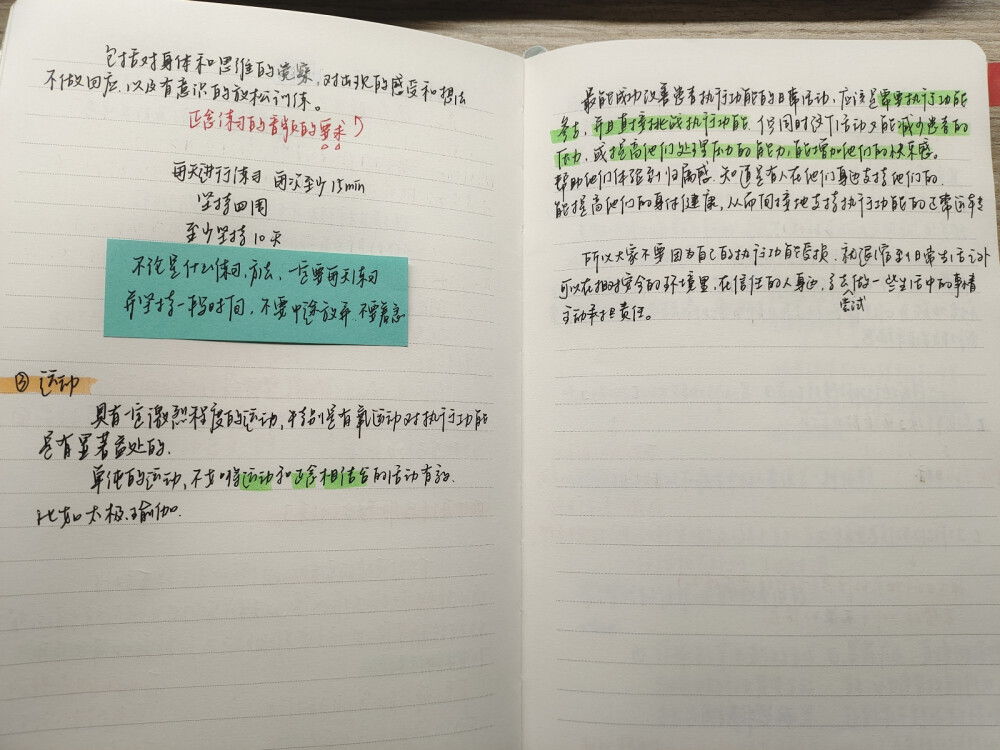 包括对身体和思维的觉察,对出现的感受和想法
不做回应,以及有意识的放松训练。
正念练习的音频的要求
每天进行练习 每次至少15min
坚持四周
至少坚持10天
不论是什么练习方法,一定要每天练习
并坚持一段时间,不要中途放弃,不要着急
③ 运动
具有一定激烈程度的运动,特别是有氧运动对执行功能
是有显著益处的.
单纯的运动,不如将运动和正念相结合的活动有效.
比如太极、瑜伽.
最能成功改善患者执行功能的日常活动,应该是需要执行功能
参与,并且直接挑战执行功能.但同时这个活动又能减少患者的
压力,或提高他们处理压力的能力,能增加他们的快乐感.
帮助他们体验到归属感.知道是有人在他们身边支持他们的.
能提高他们的身体健康,从而间接地支持执行功能的正常运转
所以大家不要因为自己的执行功能受损,就退缩到日常生活之外
可以在相对安全的环境里,在信任的人身边,多去做一些生活中的事情
尝试
主动承担责任。